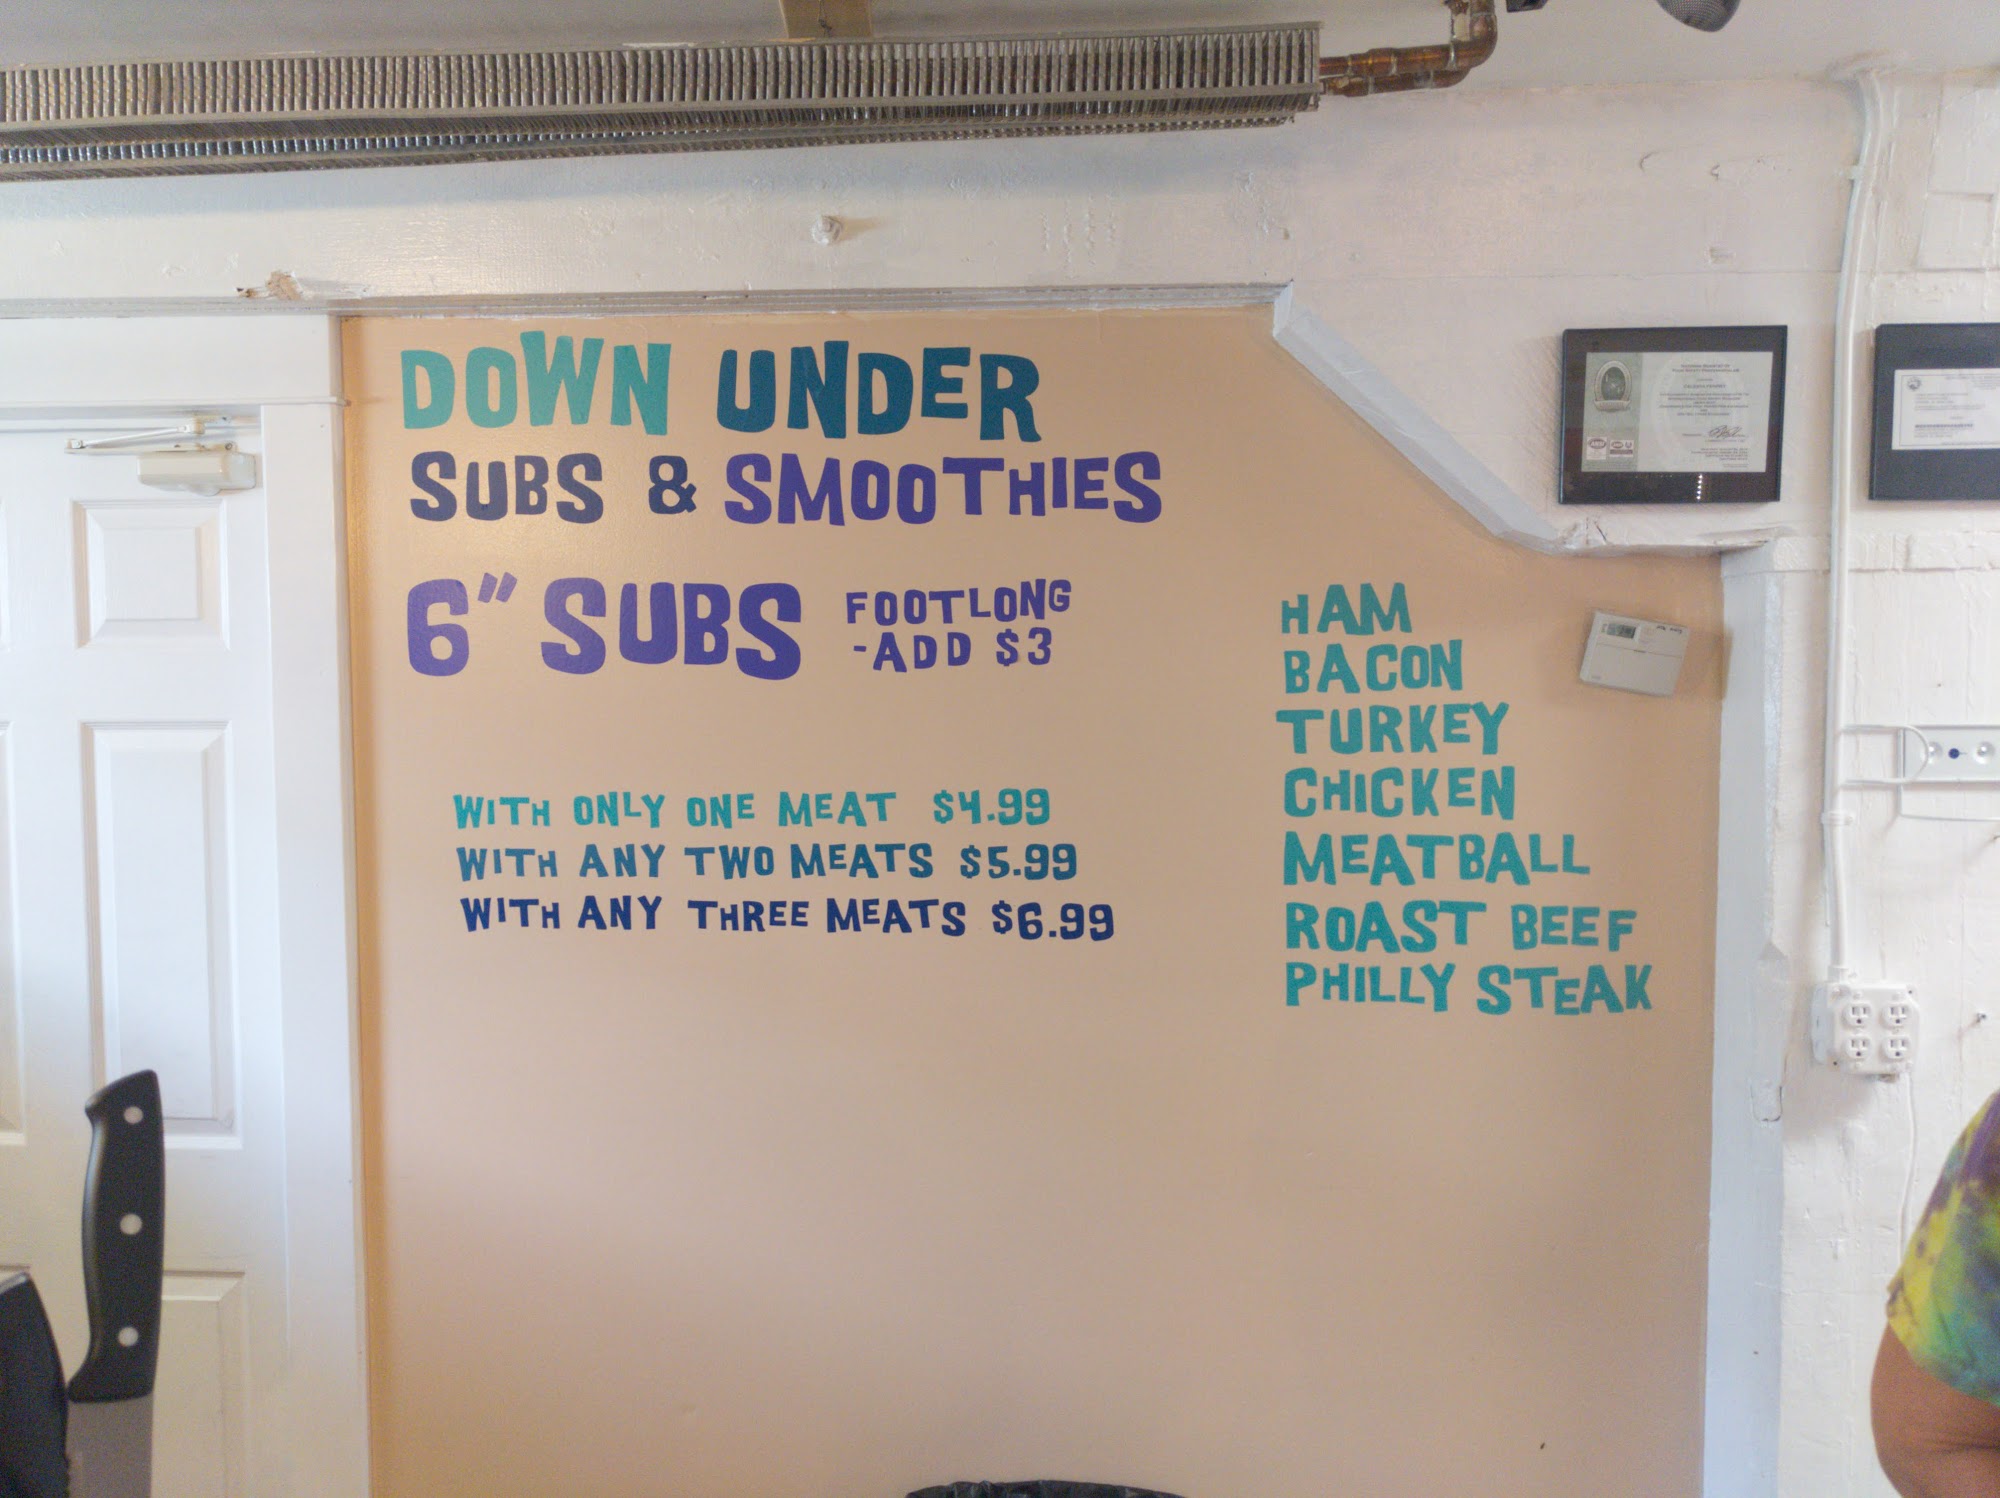 DOWN UNDER
SUBS & SMOOTHIES
6" SUBS
FOOTLONG
-ADD $3
WITH ONLY ONE MEAT $4.99
WITH ANY TWO MEATS $5.99
WITH ANY THREE MEATS $6.99
HAM
BACON
TURKEY
CHICKEN
MEATBALL
ROAST BEEF
PHILLY STEAK